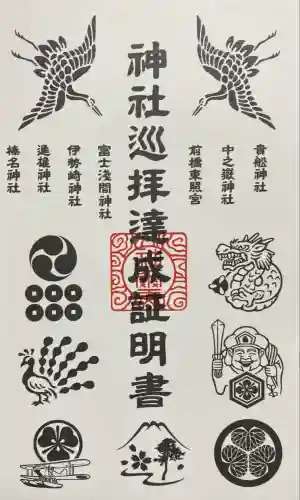 神社巡拝達成証明書
貴船神社
中之嶽神社
前橋東照宮
冨士浅間神社
伊勢崎神社
進雄神社
榛名神社